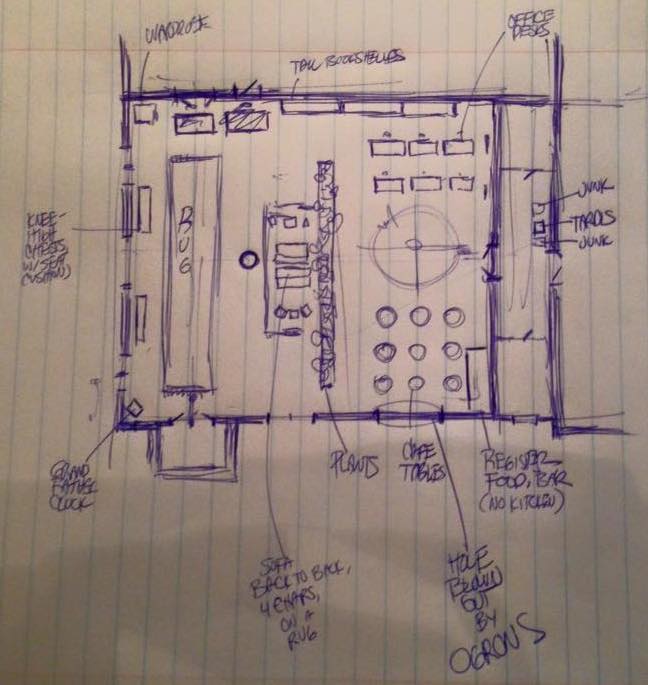 WARDROBE
TALL BOOKSHELVES
OFFICE
DESKS
KNEE-
HIGH
CHESTS
W/SEAT
CUSHION
RUG
JUNK
TARDIS
JUNK
GRAND
FATHER
CLOCK
PLANTS
CAFE
TABLES
REGISTER
FOOD, BAR
(NO KITCHEN)
SOFA
BACK TO BACK,
4 CHAIRS,
ON A
RUG
HOLE
BLOWN
OUT
BY
OGRONS